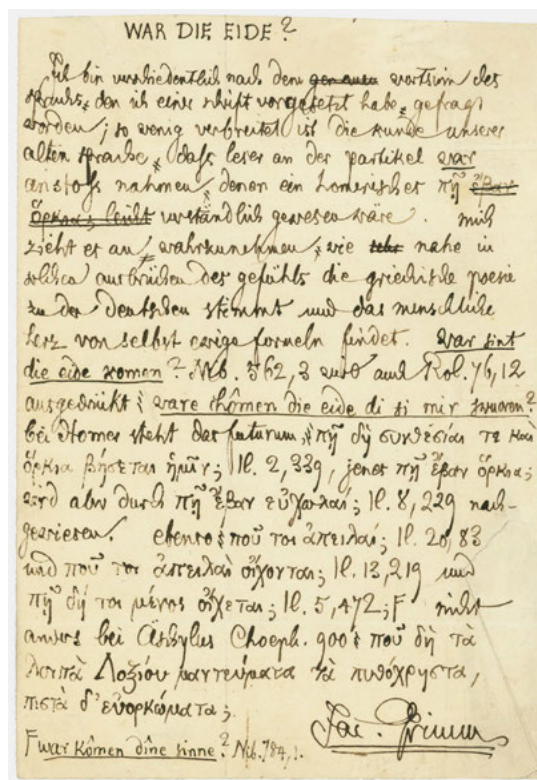 WAR DIE EIDE?
Ich bin verschiedentlich nach dem genauen wortsinn des
spruchs, den ich einer schrift vorgesetzt habe, gefragt
worden; so wenig verbreitet ist die kunde unserer
alten sprache, dass leser an der partikel war
anstoss nahmen, denen ein homerisches πῆ ἔβαν
ὅρκια; leicht verständlich gewesen wäre. mich
zieht es an, wahrzunehmen, wie sehr nahe in
solchen ausbrüchen des gefühls die griechische poesie
zu der deutschen stimmt und das menschliche
herz von selbst ewige formeln findet. war sint
die eide komen? Nib. 562,3 wird auch Rol. 76,12
ausgedrückt: ware chômen die eide di si mir swuoren?
bei Homer steht das futurum, πῆ δὴ συνθεσίαι τε καὶ
ὅρκια βήσεται ἡμῖν; Il. 2,339, jenes πῆ ἔβαν ὅρκια;
wird aber durch πῆ ἔβαν εὐχωλαί; Il. 8,229 nach-
gewiesen. ebenso: ποῦ τοι ἀπειλαί; Il. 20,83
und ποῦ τοι ἀπειλαὶ οἴχονται; Il. 13,219 und
πῆ δή τοι μένος οἴχεται; Il. 5,472; F nicht
anders bei Äschylus Choeph. 900: ποῦ δὴ τὰ
λοιπὰ Λοξίου μαντεύματα τὰ πυθόχρηστα,
πιστὰ δ' εὐορκώματα;
Jac. Grimm
F war kômen dîne sinne? Nib. 784,1.